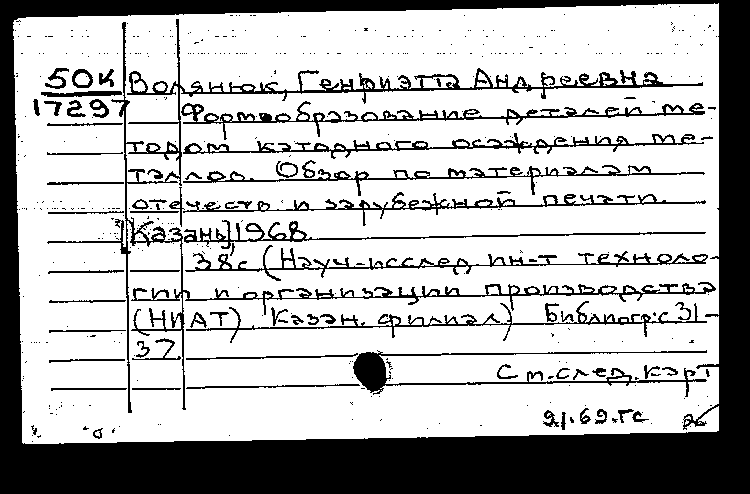 50к Волянюк, Генриэтта Андреевна
17297 Формообразование деталей ме-
тодом катодного осаждения ме-
таллов. Обзор по материалам
отечеств и зарубежной печати.
[Казань] 1968.
38с (Науч.-исслед ин-т техноло-
гии и организации производства
(НИАТ). Казан. филиал) Библиогр: с 31-
37.
См. след. карт
21.69.Гс